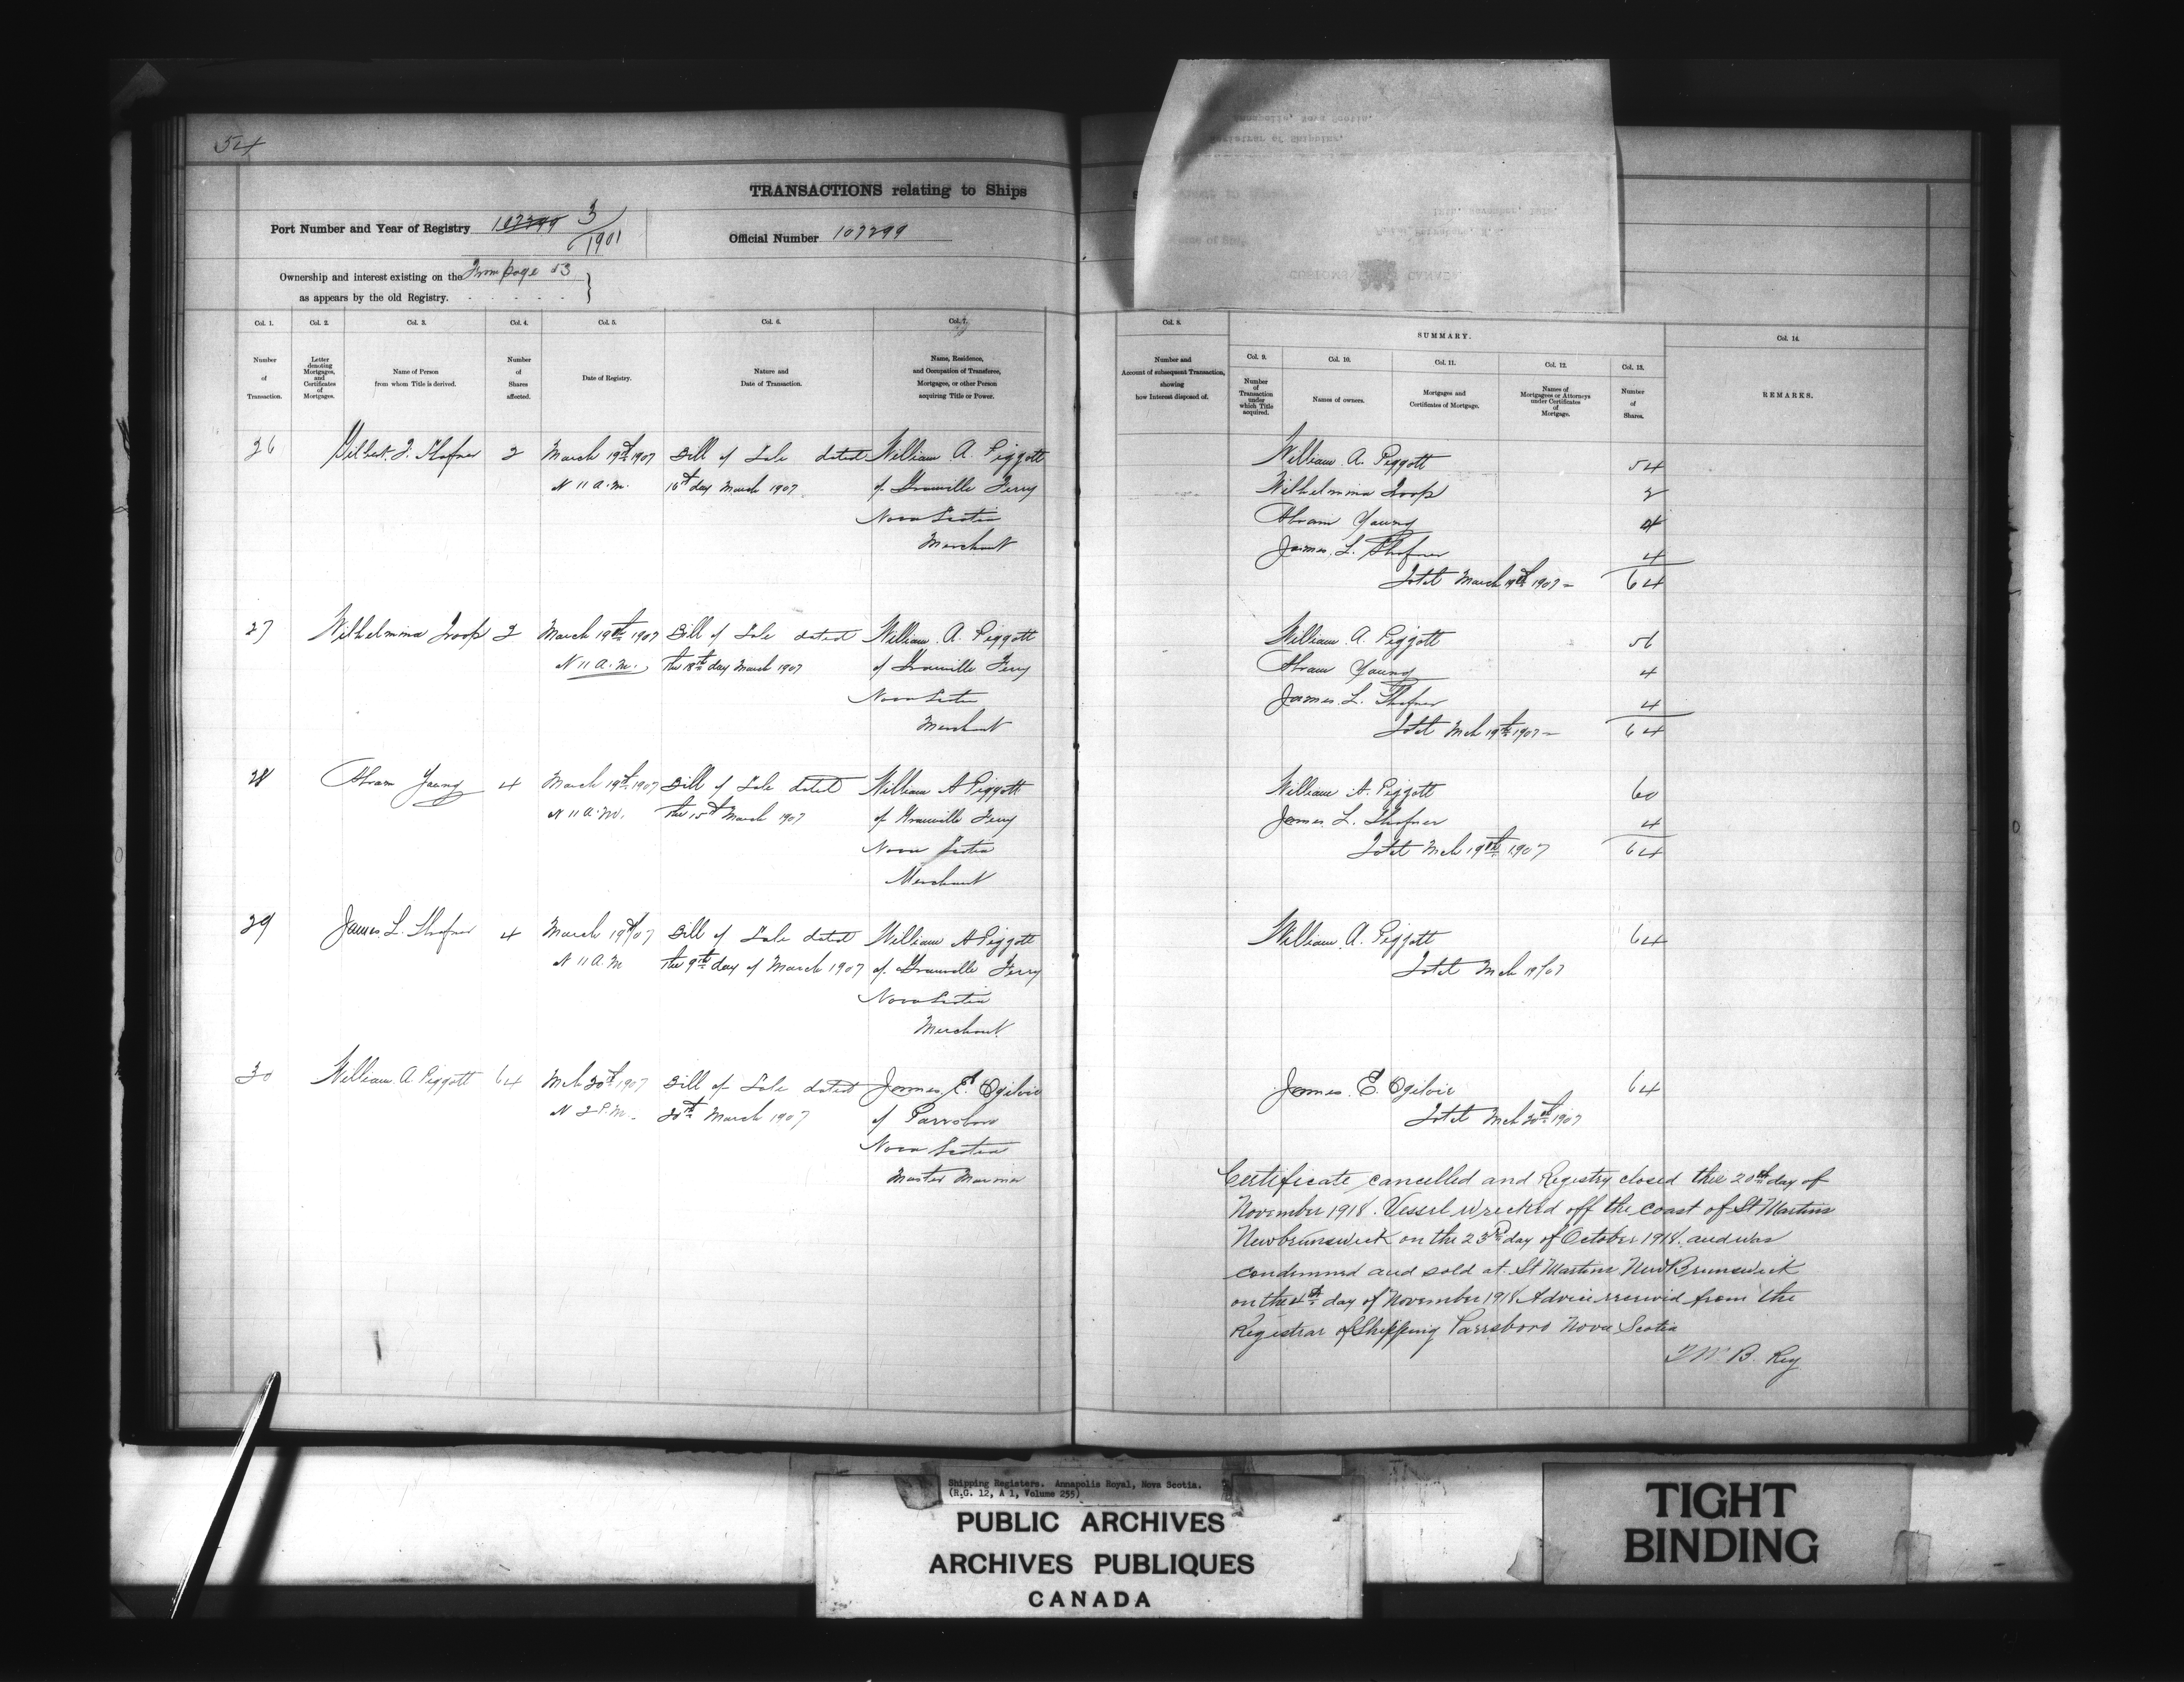 54
TRANSACTIONS relating to Ships
Port Number and Year of Registry 107299 3/1901
Official Number 107299
Ownership and interest existing on the From page 53
as appears by the old Registry.
CUSTOMS CANADA
Registrar of Shipping,
Annapolis, Nova Scotia.
Col. 1. Col. 2. Col. 3. Col. 4. Col. 5. Col. 6. Col. 7.
Number of Transaction.
Letter denoting Mortgages, and Certificates of Mortgages.
Name of Person from whom Title is derived.
Number of Shares affected.
Date of Registry.
Nature and Date of Transaction.
Name, Residence, and Occupation of Transferee, Mortgagee, or other Person acquiring Title or Power.
26 F. Shafner 2 March 19th 1907 Bill of Sale dated William A. Piggott
11 A.M. 16th day March 1907 of Granville Ferry
Nova Scotia
Merchant
27 Wilhelmina Troop 2 March 19th 1907 Bill of Sale dated William A. Piggott
11 A.M. the 18th day March 1907 of Granville Ferry
Nova Scotia
Merchant
28 Abram Young 4 March 19th 1907 Bill of Sale dated William A Piggott
11 A.M. the 15th March 1907 of Granville Ferry
Nova Scotia
Merchant
29 James L. Shafner 4 March 19th/07 Bill of Sale dated William A Piggott
11 A.M the 9th day of March 1907 of Granville Ferry
Nova Scotia
Merchant
30 William A Piggott 64 Mch 20th 1907 Bill of Sale dated James E. Ogilvie
2 P.M. 20th March 1907 of Parrsboro
Nova Scotia
Master Mariner
Col. 8.
Number and Account of subsequent Transaction, showing how Interest disposed of.
SUMMARY.
Col. 9. Col. 10. Col. 11. Col. 12. Col. 13. Col. 14.
Number of Transaction under which Title acquired.
Names of owners.
Mortgages and Certificates of Mortgage.
Names of Mortgagees or Attorneys under Certificates of Mortgage.
Number of Shares.
REMARKS.
William A. Piggott 54
Wilhelmina Troop 2
Abram Young 4
James L. Shafner 4
Total March 19th 1907 – 64
William A. Piggott 56
Abram Young 4
James L. Shafner 4
Total Mch 19th 1907 – 64
William A. Piggott 60
James L. Shafner 4
Total Mch 19th 1907 64
William A. Piggott 64
Total Mch 19/07
James E. Ogilvie 64
Total Mch 20th 1907
Certificate cancelled and Registry closed this 20th day of
November 1918. Vessel wrecked off the coast of St Martins
Newbrunswick on the 23rd day of October 1918. and was
condemned and sold at St Martins New Brunswick
on the 4th day of November 1918 Advice received from the
Registrar of Shipping Parrsboro Nova Scotia
B. Reg
Shipping Registers. Annapolis Royal, Nova Scotia.
(R.G. 12, A 1, Volume 255)
PUBLIC ARCHIVES
ARCHIVES PUBLIQUES
CANADA
TIGHT
BINDING